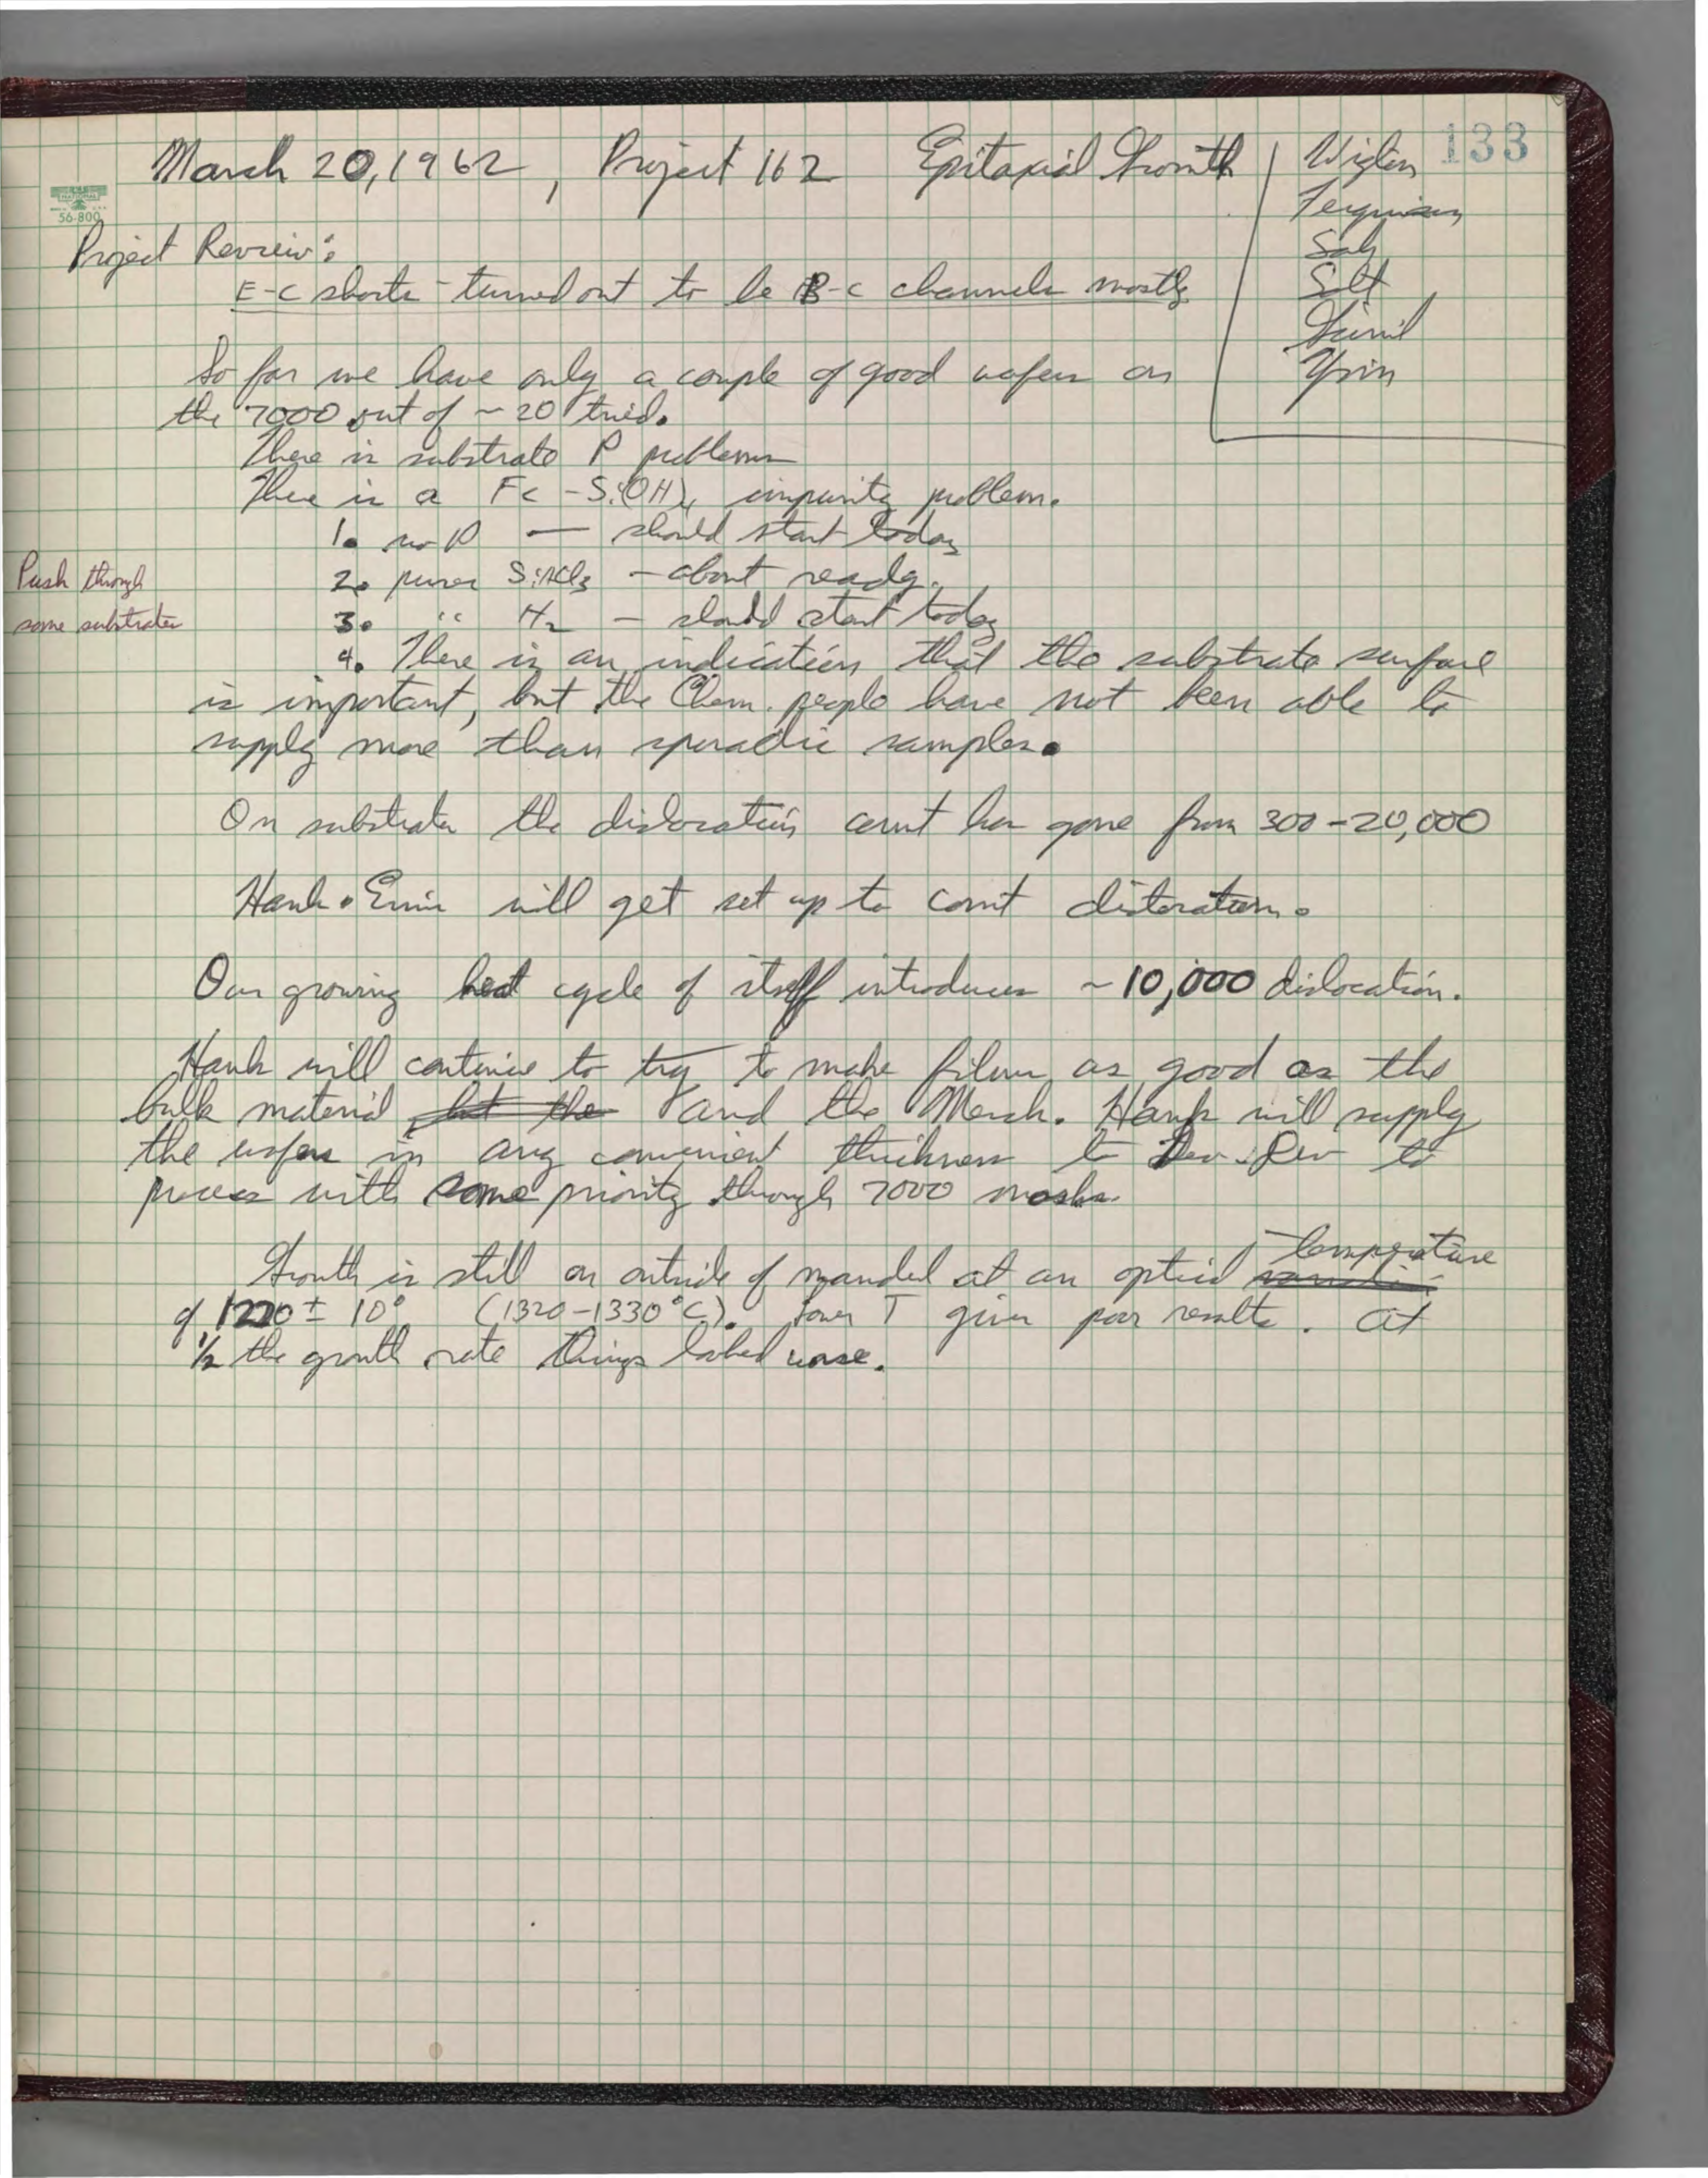 133
March 20, 1962, Project 162 Epitaxial Growth
Ferguson
Sah
Salt
Yim
56-800
Project Review:
E-C shorts turned out to be B-C channels mostly
So far we have only a couple of good wafers on
the 7000 out of ~ 20 tried.
There is substrate P problems
There is a Fe - Si(OH)4 impurity problem.
1. no P — should start today
2. purer SiHCl3 - about ready.
3. " H2 - should start today
Push through
some substrates
4. There is an indication that the substrate surface
is important, but the Chem. people have not been able to
supply more than sporadic samples.
On substrates the dislocation count has gone from 300-20,000
Hank & Ernie will get set up to count dislocations.
Our growing heat cycle of itself introduces ~10,000 dislocation.
Hank will continue to try to make films as good as the
bulk material but the and the Merck. Hank will supply
the wafers in any convenient thickness to Dev. Dev to
process with some priority through 7000 masks.
Growth is still on outside of mandrel at an optical temperature
of 1220 ± 10° (1320-1330°C). Lower T gives poor results. At
1/2 the growth rate things looked worse.